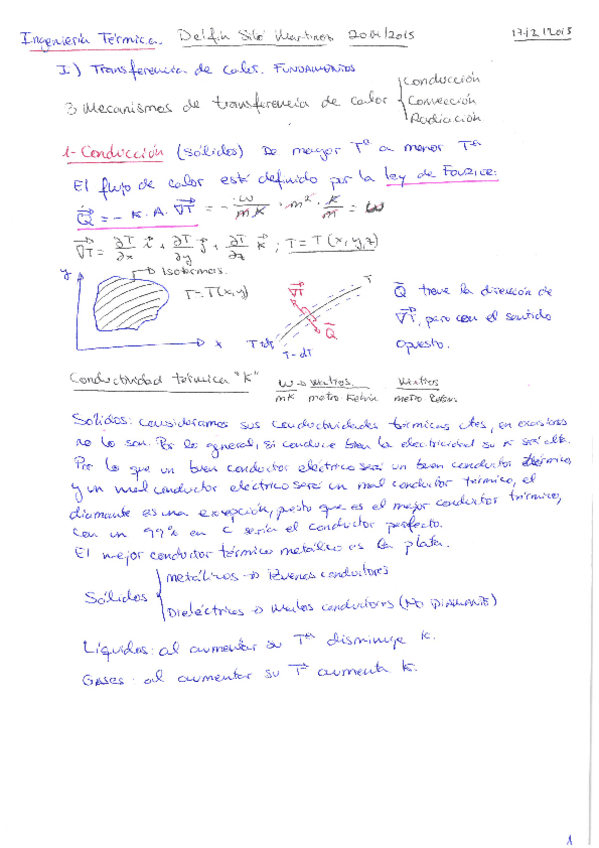 Ingeniería Térmica. Delfín Silió Martínez 2014/2015 17/2/2015
I.) Transferencia de calor. FUNDAMENTOS
3 Mecanismos de transferencia de calor { Conducción
Convección
Radiación
1- Conducción (sólidos) De mayor Tª a menor Tª
El flujo de calor está definido por la ley de FOURIER:
Q = - K. A. ∇T = - W/mK · m² · K/m = W
∇T = ∂T/∂x i + ∂T/∂y j + ∂T/∂z k ; T = T(x,y,z)
y → Isotermas.
T = T(x,y)
x
∇T T
Q
T+dT
T-dT
Q tiene la dirección de
∇T, pero con el sentido
opuesto.
Conductividad térmica "K" W/mK → Watios/metro·Kelvin Watios/metro
Sólidos: consideramos sus conductividades térmicas ctes,
no lo son. Por lo general, si conduce bien la electricidad su k será alta.
Por lo que un buen conductor eléctrico será un buen conductor térmico,
y un mal conductor eléctrico será un mal conductor térmico, el
diamante es una excepción, puesto que es el mejor conductor térmico,
con un 99% en C sería el conductor perfecto.
El mejor conductor térmico metálico es la plata.
Sólidos { metálicos → Buenos conductores
Dieléctricos → Malos conductores (NO DIAMANTE)
Líquidos: al aumentar su Tª disminuye k.
Gases: al aumentar su Tª aumenta k.
1